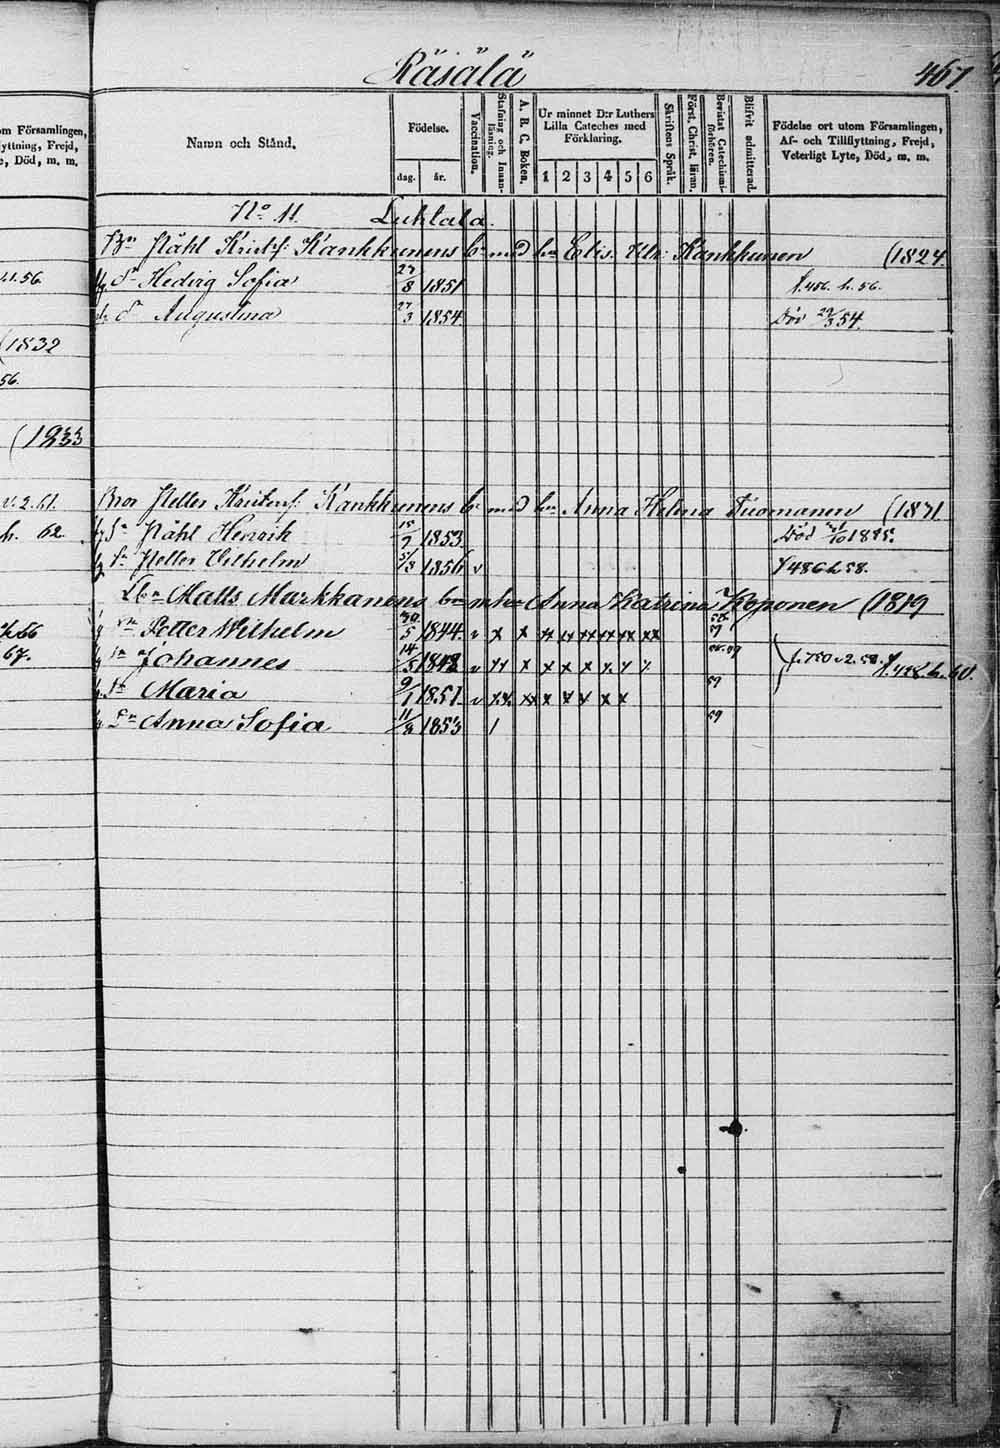 Räsälä 467.
om Församlingen,
yttning, Frejd,
e, Död, m. m.
Namn och Stånd.
Födelse.
dag. år.
Vaccination.
Stafning och Innanläsning.
A. B. C. Boken.
Ur minnet D:r Luthers Lilla Cateches med Förklaring.
1 2 3 4 5 6
Skriftens Språk.
Först. Christ. läran.
Bevistat Catechismiförhören.
Blifvit admitterad.
Födelse ort utom Församlingen, Af- och Tillflyttning, Frejd, Veterligt Lyte, Död, m. m.
No 11. Luhtala.
Påhl Krist: Kankkunens med Elis. Ulr: Kankkunen (1824.
56. Hedvig Sofia 27/8 1851 f. 456. h. 56.
Augustina 27/3 1854 Död 29/3 54.
(1832
56.
(1833
v. 2. 61. Bror Petter Kankkunens med Anna Helena Tuomanen (1831
h. 62. Påhl Henrik 15/7 1853 Död
Petter Vilhelm 1856 v f 486 h 58.
Matts Markkanens Anna Katrina Koponen (1819
66 Petter Wilhelm 1844 v x x xx xx xx xx xx xx 59
67. Johannes 14/5 1848 v xx x x x x x x x 58. 59 f. 750 v 2. 58. h. 60.
Maria 9/1 1851 v xx xx x x x x x 59
Anna Sofia 11/8 1853 / 59